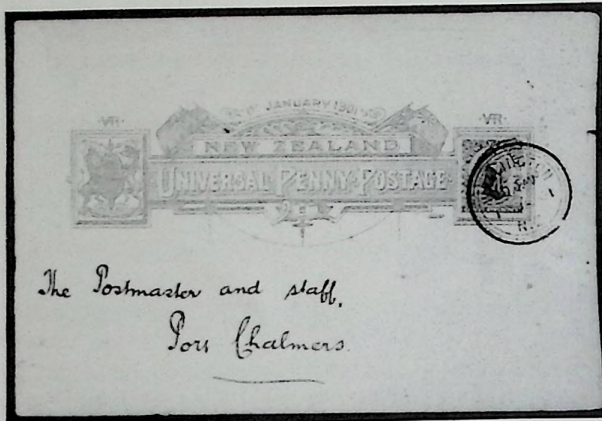 1st JANUARY 1901
VR VR
NEW ZEALAND
UNIVERSAL PENNY POSTAGE
WELLINGTON
N.Z
The Postmaster and staff,
Port Chalmers.